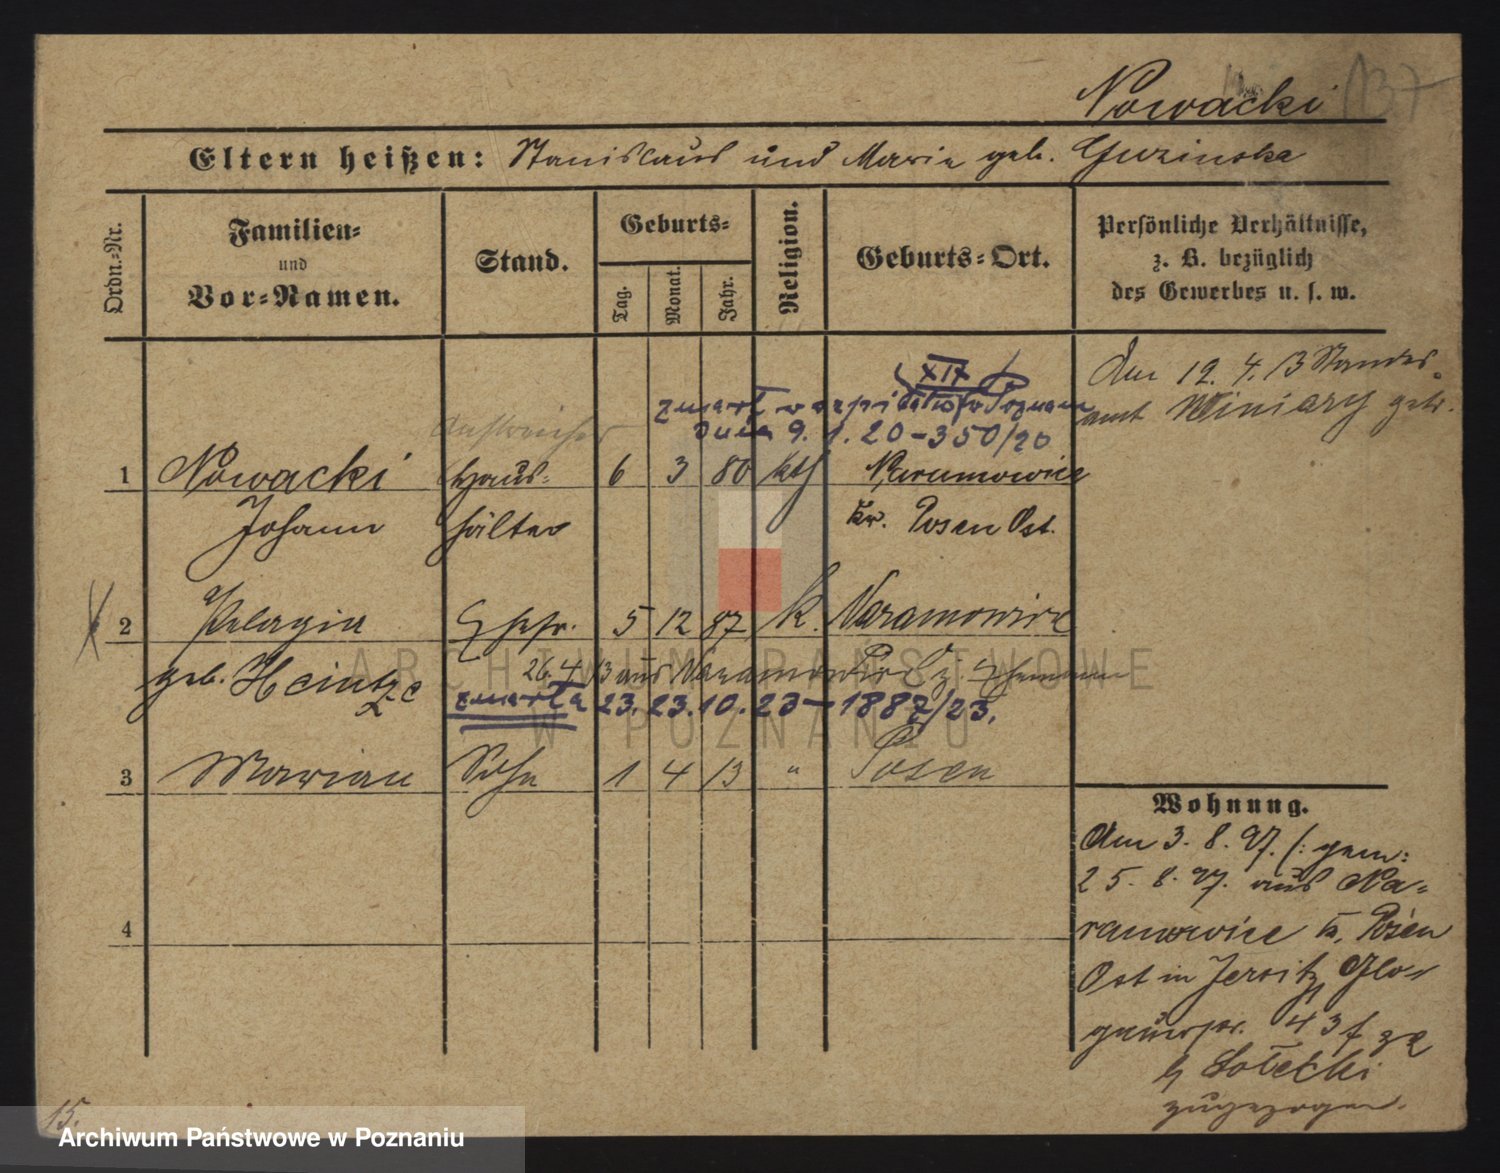 Nowacki 137
Eltern heißen: Stanislaus und Maria geb. Guzinska
Ordn.-Nr.
Familien-
und
Vor-Namen.
Stand.
Geburts-
Tag.
Monat.
Jahr.
Religion.
Geburts-Ort.
Persönliche Verhältnisse,
z. B. bezüglich
des Gewerbes u. s. w.
XIX
zmarł w szpitalu Poznań
dnia 9. 1. 20 - 350/20
Am 12. 4. 13 Standes-
amt Winiary getr.
1 Nowacki Haus- 6 3 80 kth Naramowice
Johann hälter Kr. Posen Ost.
2 Pelagia Ehefr. 5 12 87 k. Naramowice
geb. Heintze 26. 4. 13 aus Naramowice z. Ehemann
zmarła 23. 23. 10. 23 - 1887/23.
3 Marian Sohn 1 4 13 " Posen
4
Wohnung.
Am 3. 8. 97. (: gem:
25. 8. 97. aus Na-
ramowice Kr. Posen
Ost in Jersitz Glo-
gauerstr. 43 f
b Sołecki
zugezogen.
15.
ARCHIWUM PAŃSTWOWE
W POZNANIU
Archiwum Państwowe w Poznaniu